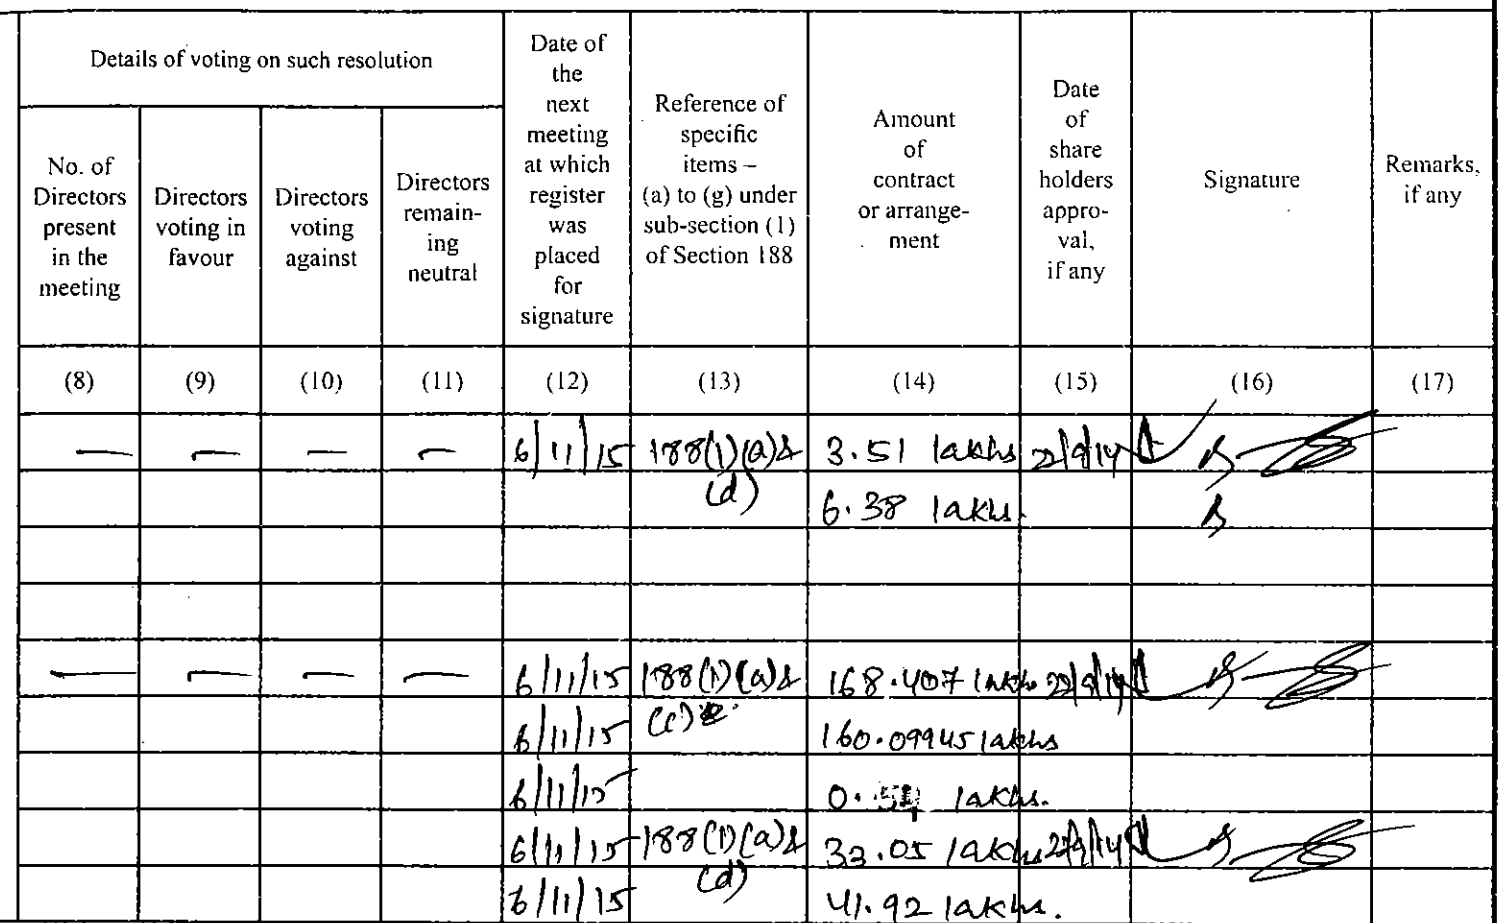 Details of voting on such resolution
No. of
Directors
present
in the
meeting
Directors
voting in
favour
Directors
voting
against
Directors
remain-
ing
neutral
Date of
the
next
meeting
at which
register
was
placed
for
signature
Reference of
specific
items –
(a) to (g) under
sub-section (1)
of Section 188
Amount
of
contract
or arrange-
ment
Date
of
share
holders
appro-
val,
if any
Signature
Remarks,
if any
(8) (9) (10) (11) (12) (13) (14) (15) (16) (17)
— — — — 6/11/15 188(1)(a)& 3.51 lakhs 22/9/14
(d) 6.38 lakhs.
— — — — 6/11/15 188(1)(a)& 168.407 lakhs 22/9/14
6/11/15 160.09945 lakhs
6/11/15 lakhs.
6/11/15 188(1)(a)& 33.05 lakhs 22/9/14
6/11/15 (d) 41.92 lakhs.